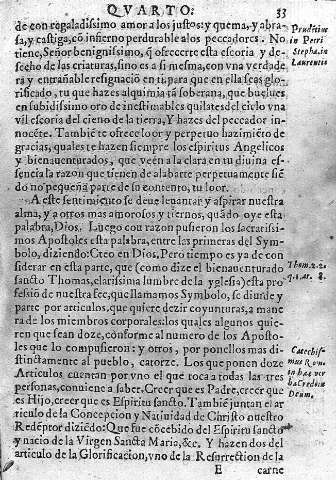 QVARTO. 33
de con regaladissimo amor a los justos: y quema, y abra-
sa, y castiga, cō infierno perdurable a los peccadores. No
tiene, Señor benignissimo, q̄ ofrecerte esta escoria y de-
secho de las criaturas, sino es a si mesma, con vna verdade
ra y entrañable resignaciō en ti, para que en ella seas glo-
rificado, tu que hazes alquimia tā soberana, que buelues
en subidissimo oro de inestimables quilates del cielo vna
vil escoria del cieno de la tierra, Y hazes del peccador in-
nocēte. Tambiē te ofrece loor y perpetuo hazimiēto de
gracias, quales te hazen siempre los espiritus Angelicos
y bienauenturados, que veen a la clara en tu diuina es-
sencia la razon que tienen de alabarte perpetuamente siē
do no pequeña parte de su contento, tu loor.
A este sentimiento se deue leuantar y aspirar nuestra
alma, y a otros mas amorosos y tiernos, quādo oye esta
palabra, Dios. Luego con razon pusieron los sacratissi-
mos Apostoles esta palabra, entre las primeras del Sym-
bolo, diziendo: Creo en Dios, Pero tiempo es ya de con
siderar en esta parte, que (como dize el bienauenturado
sancto Thomas, clarissima lumbre de la yglesia) esta pro
fessiō de nuestra fee, que llamamos Symbolo, se diuide y
parte por articulos, que quiere dezir coyunturas, a mane
ra de los miembros corporales: los quales algunos quie-
ren que sean doze, conforme al numero de los Aposto-
les que lo compusieron: y otros, por ponellos mas di-
stinctamente al pueblo, catorze. Los que ponen doze
Articulos cuentan por vno el que toca a todas las tres
personas, conuiene a saber, Creer que es Padre, creer que
es Hijo, creer que es Espiritu sancto. Tambiē juntan el ar
ticulo de la Concepcion y Natiuidad de Christo nuestro
Redēptor diziēdo: Que fue cōcebido del Espiritu sancto
y nacio de la Virgen Sancta Maria, &c. Y hazen dos del
articulo de la Glorificacion, vno de la Resurrection de la
E carne
Prudētius
in Petri
Stepha. in
Laurentio
Thom. 2. 2.
q. 1. ar. 8.
Catechis-
mus Roma
in hæc ver
ba Credo in
Deum.